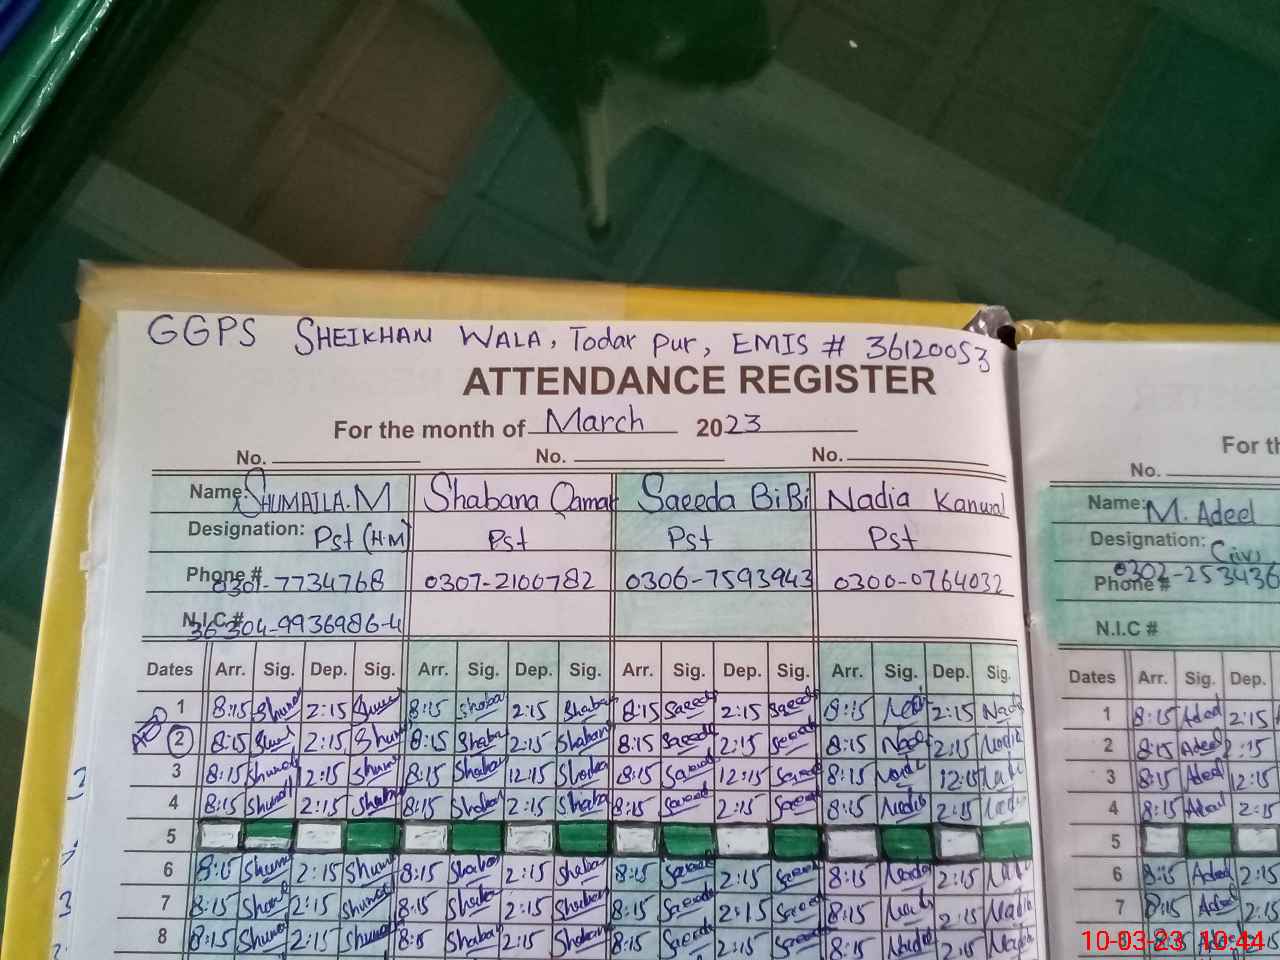 GGPS SHEIKHAN WALA, Todar Pur, EMIS # 36120053
ATTENDANCE REGISTER
For the month of March 2023
No. No. No.
Name: SHUMAILA.M Shabana Qamar Saeeda BiBi Nadia Kanwal
Designation: Pst (H.M) Pst Pst Pst
Phone # 0301-7734768 0307-2100782 0306-7593943 0300-0764032
N.I.C # 36304-9936986-4
Dates Arr. Sig. Dep. Sig. Arr. Sig. Dep. Sig. Arr. Sig. Dep. Sig. Arr. Sig. Dep. Sig.
1 8:15 2:15 8:15 Shaba 2:15 Shaba 8:15 Saeeda 2:15 Saeeda 8:15 2:15
2 8:15 2:15 8:15 Shaba 2:15 Shaban 8:15 Saeeda 2:15 Saeeda 8:15 2:15 Nadia
3 8:15 12:15 8:15 Shaba 12:15 8:15 Saeeda 12:15 Saeeda 8:15 12:15
4 8:15 2:15 8:15 Shaban 2:15 Shaba 8:15 Saeeda 2:15 Saeeda 8:15 Nadia 2:15
5
6 8:15 2:15 8:15 Shaban 2:15 Shaban 8:15 Saeeda 2:15 Saeeda 8:15 Nadia 2:15
7 8:15 2:15 8:15 2:15 Shaban 8:15 Saeeda 2:15 Saeeda 8:15 Nadia 2:15 Nadia
8 8:15 2:15 8:15 Shaban 2:15 Shaban 8:15 Saeeda 2:15 Saeeda 8:15 Nadia 2:15 Nadia
For th
No.
Name: M. Adeel
Designation:
Phone # 0302-253436
N.I.C #
Dates Arr. Sig. Dep.
1 8:15 Adeel 2:15
2 8:15 Adeel 2:15
3 8:15 Adeel 12:15
4 8:15 Adeel 2:15
5
6 8:15 Adeel 2:15
7 8:15 Adeel 2:15
10-03-23 10:44